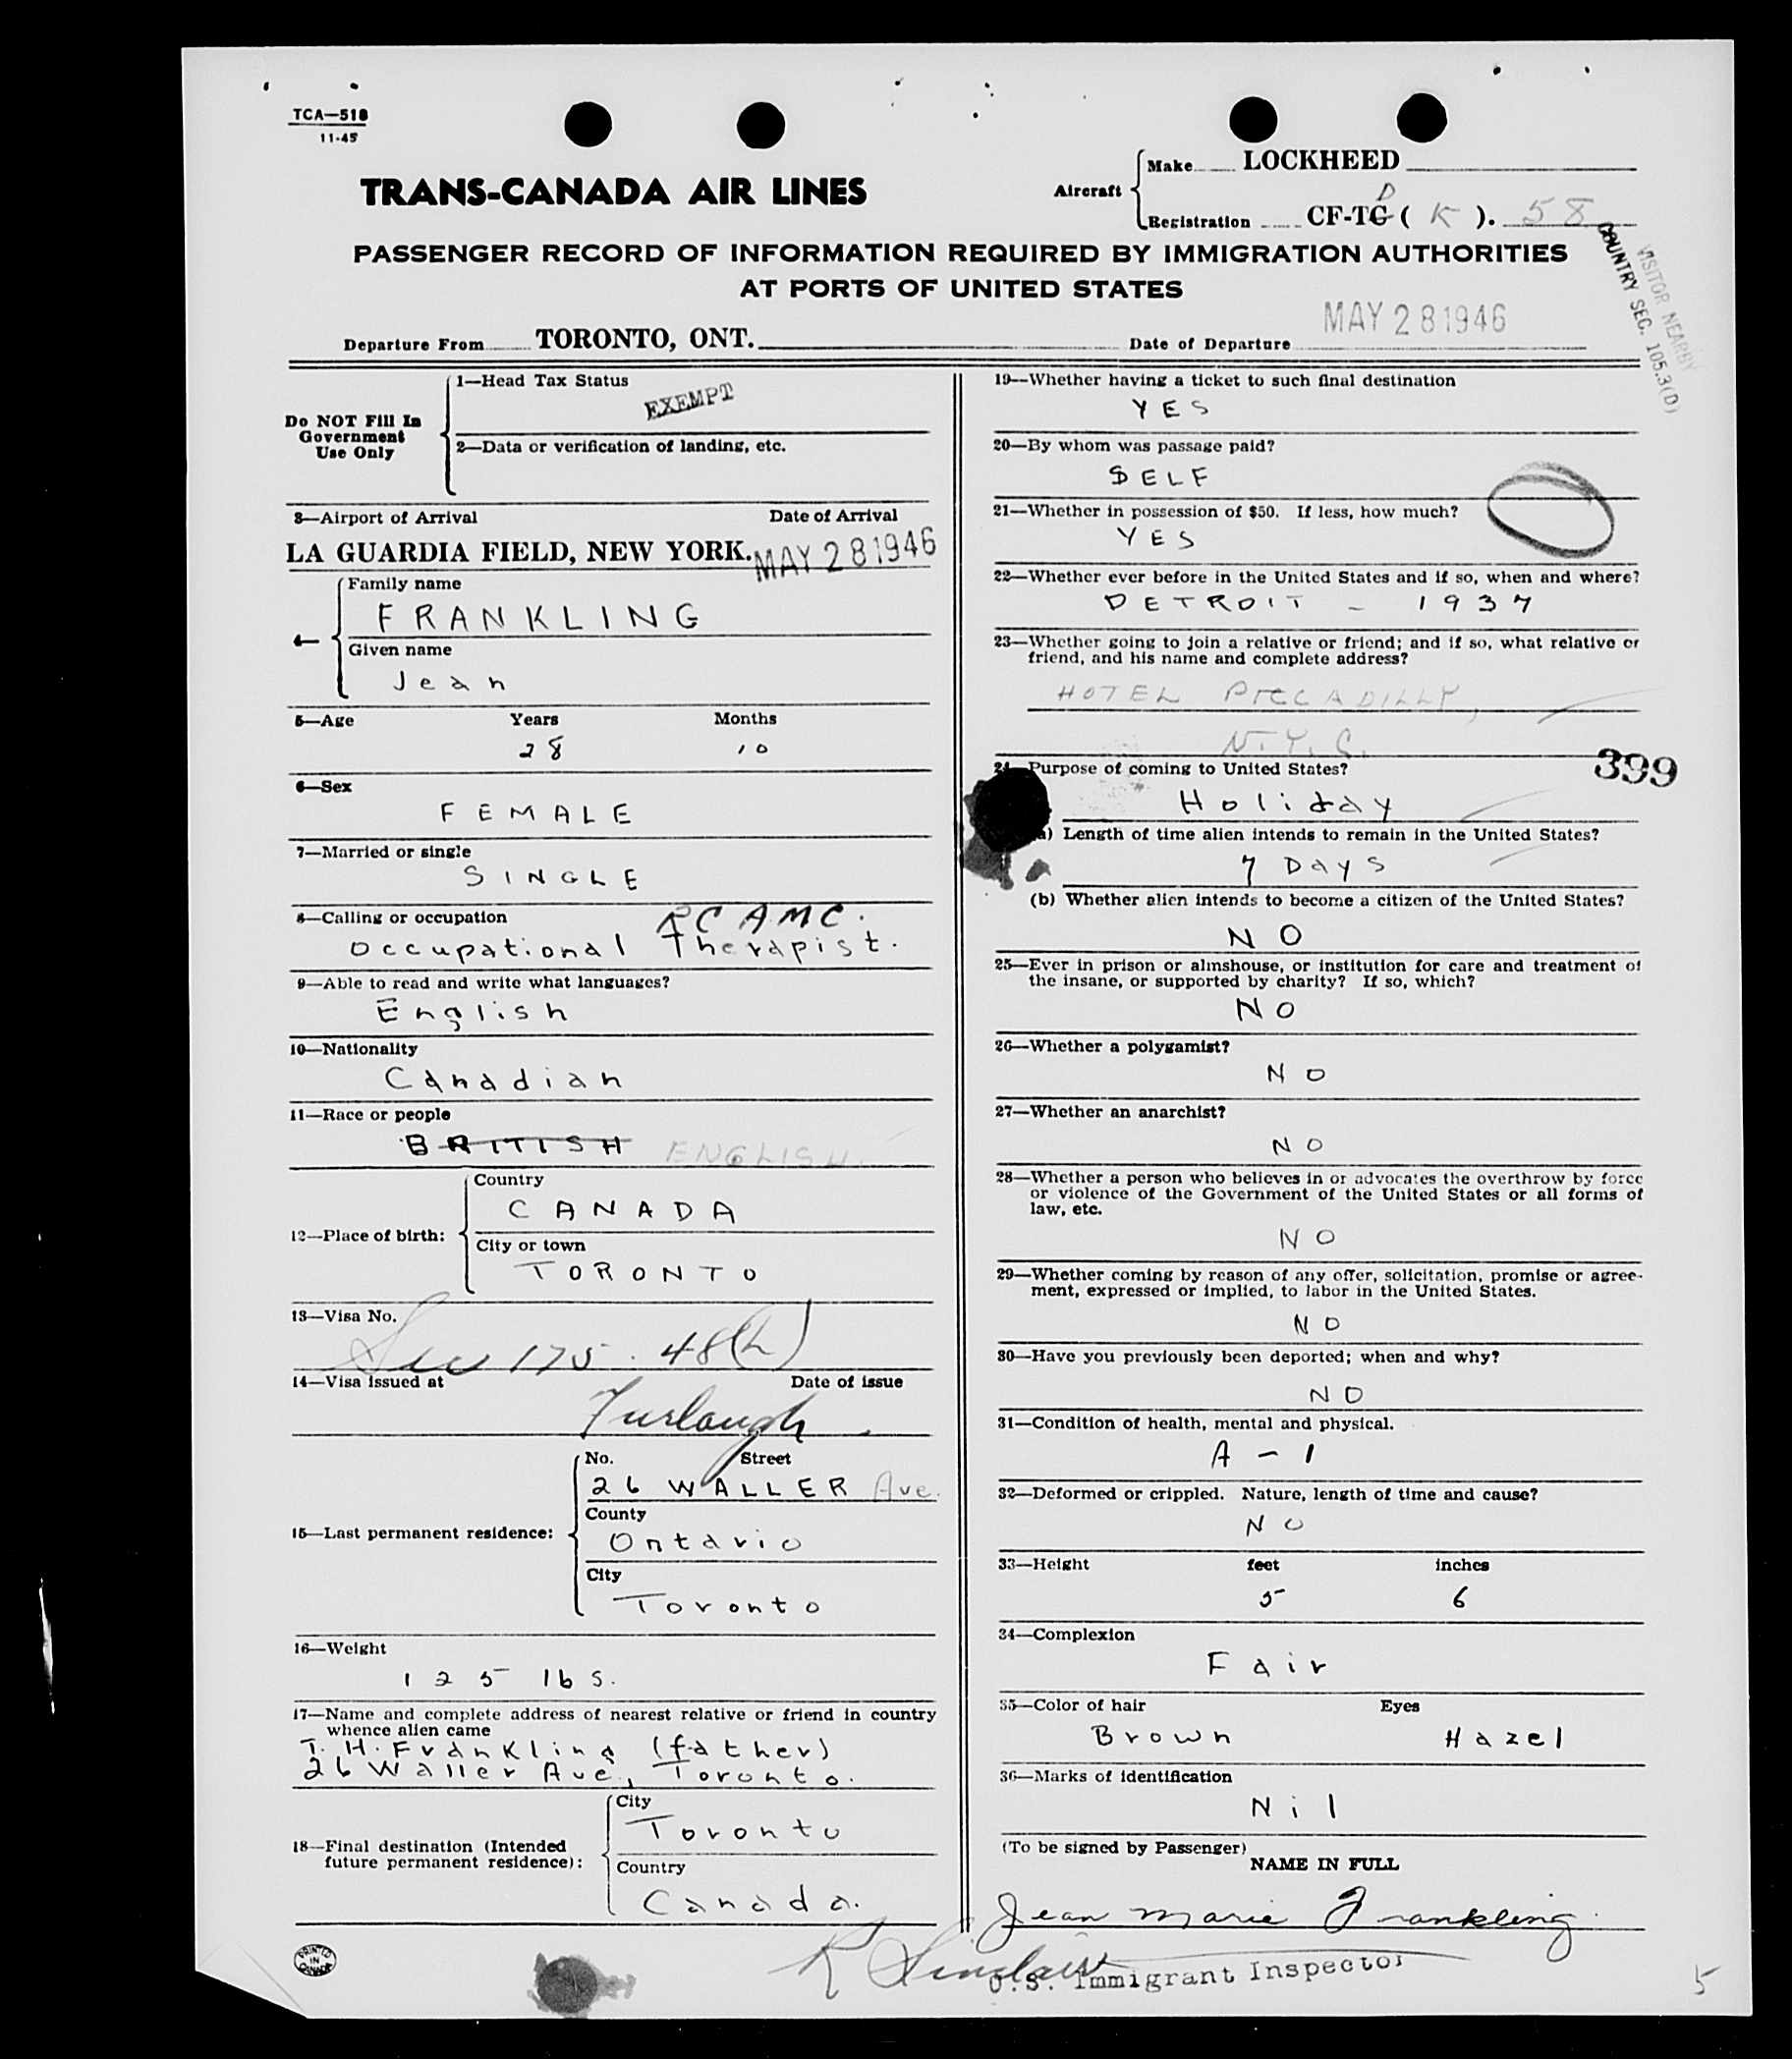 TCA—518
11-45
TRANS-CANADA AIR LINES
Aircraft
Make LOCKHEED
D
Registration CF-TG ( K ). 58
PASSENGER RECORD OF INFORMATION REQUIRED BY IMMIGRATION AUTHORITIES
AT PORTS OF UNITED STATES
VISITOR NEARBY
COUNTRY SEC. 105.3(D)
Departure From TORONTO, ONT.
Date of Departure MAY 28 1946
Do NOT Fill In
Government
Use Only
1—Head Tax Status
EXEMPT
2—Data or verification of landing, etc.
3—Airport of Arrival Date of Arrival
LA GUARDIA FIELD, NEW YORK. MAY 28 1946
4—
Family name
FRANKLING
Given name
Jean
5—Age Years Months
28 10
6—Sex
FEMALE
7—Married or single
SINGLE
8—Calling or occupation RCAMC.
Occupational Therapist.
9—Able to read and write what languages?
English
10—Nationality
Canadian
11—Race or people
BRITISH ENGLISH.
12—Place of birth:
Country
CANADA
City or town
TORONTO
13—Visa No.
Sec 175.48(h)
14—Visa issued at Date of issue
Furlough
15—Last permanent residence:
No. Street
26 WALLER Ave.
County
Ontario
City
Toronto
16—Weight
125 lbs.
17—Name and complete address of nearest relative or friend in country
whence alien came
T. H. Frankling (father)
26 Waller Ave., Toronto.
18—Final destination (Intended
future permanent residence):
City
Toronto
Country
Canada.
19—Whether having a ticket to such final destination
YES
20—By whom was passage paid?
SELF
21—Whether in possession of $50. If less, how much?
YES
22—Whether ever before in the United States and if so, when and where?
DETROIT - 1937
23—Whether going to join a relative or friend; and if so, what relative or
friend, and his name and complete address?
HOTEL PICCADILLY,
N.Y.C.
399
24—Purpose of coming to United States?
Holiday
(a) Length of time alien intends to remain in the United States?
7 Days
(b) Whether alien intends to become a citizen of the United States?
NO
25—Ever in prison or almshouse, or institution for care and treatment of
the insane, or supported by charity? If so, which?
NO
26—Whether a polygamist?
NO
27—Whether an anarchist?
NO
28—Whether a person who believes in or advocates the overthrow by force
or violence of the Government of the United States or all forms of
law, etc.
NO
29—Whether coming by reason of any offer, solicitation, promise or agree-
ment, expressed or implied, to labor in the United States.
NO
30—Have you previously been deported; when and why?
NO
31—Condition of health, mental and physical.
A-1
32—Deformed or crippled. Nature, length of time and cause?
NO
33—Height feet inches
5 6
34—Complexion
Fair
35—Color of hair Eyes
Brown Hazel
36—Marks of identification
Nil
(To be signed by Passenger)
NAME IN FULL
Jean Marie Frankling.
PRINTED
IN
CANADA
R Sinclair
U.S. Immigrant Inspector
5